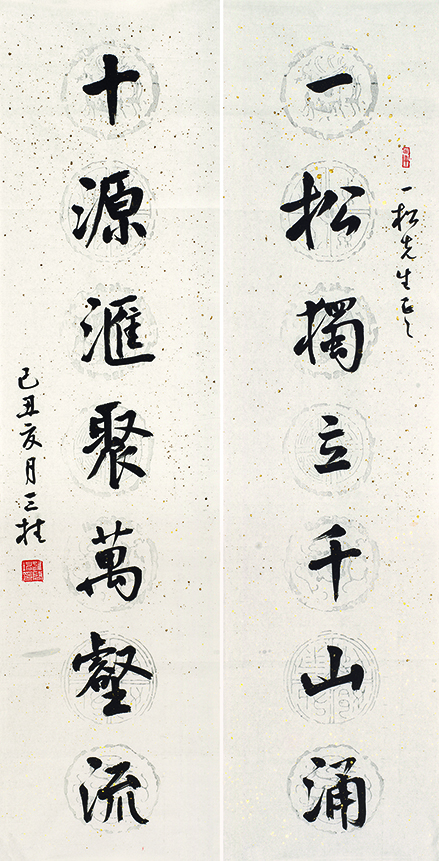 一松先生正之
一松獨立千山涌
十源滙聚萬壑流
己丑夏月三桂